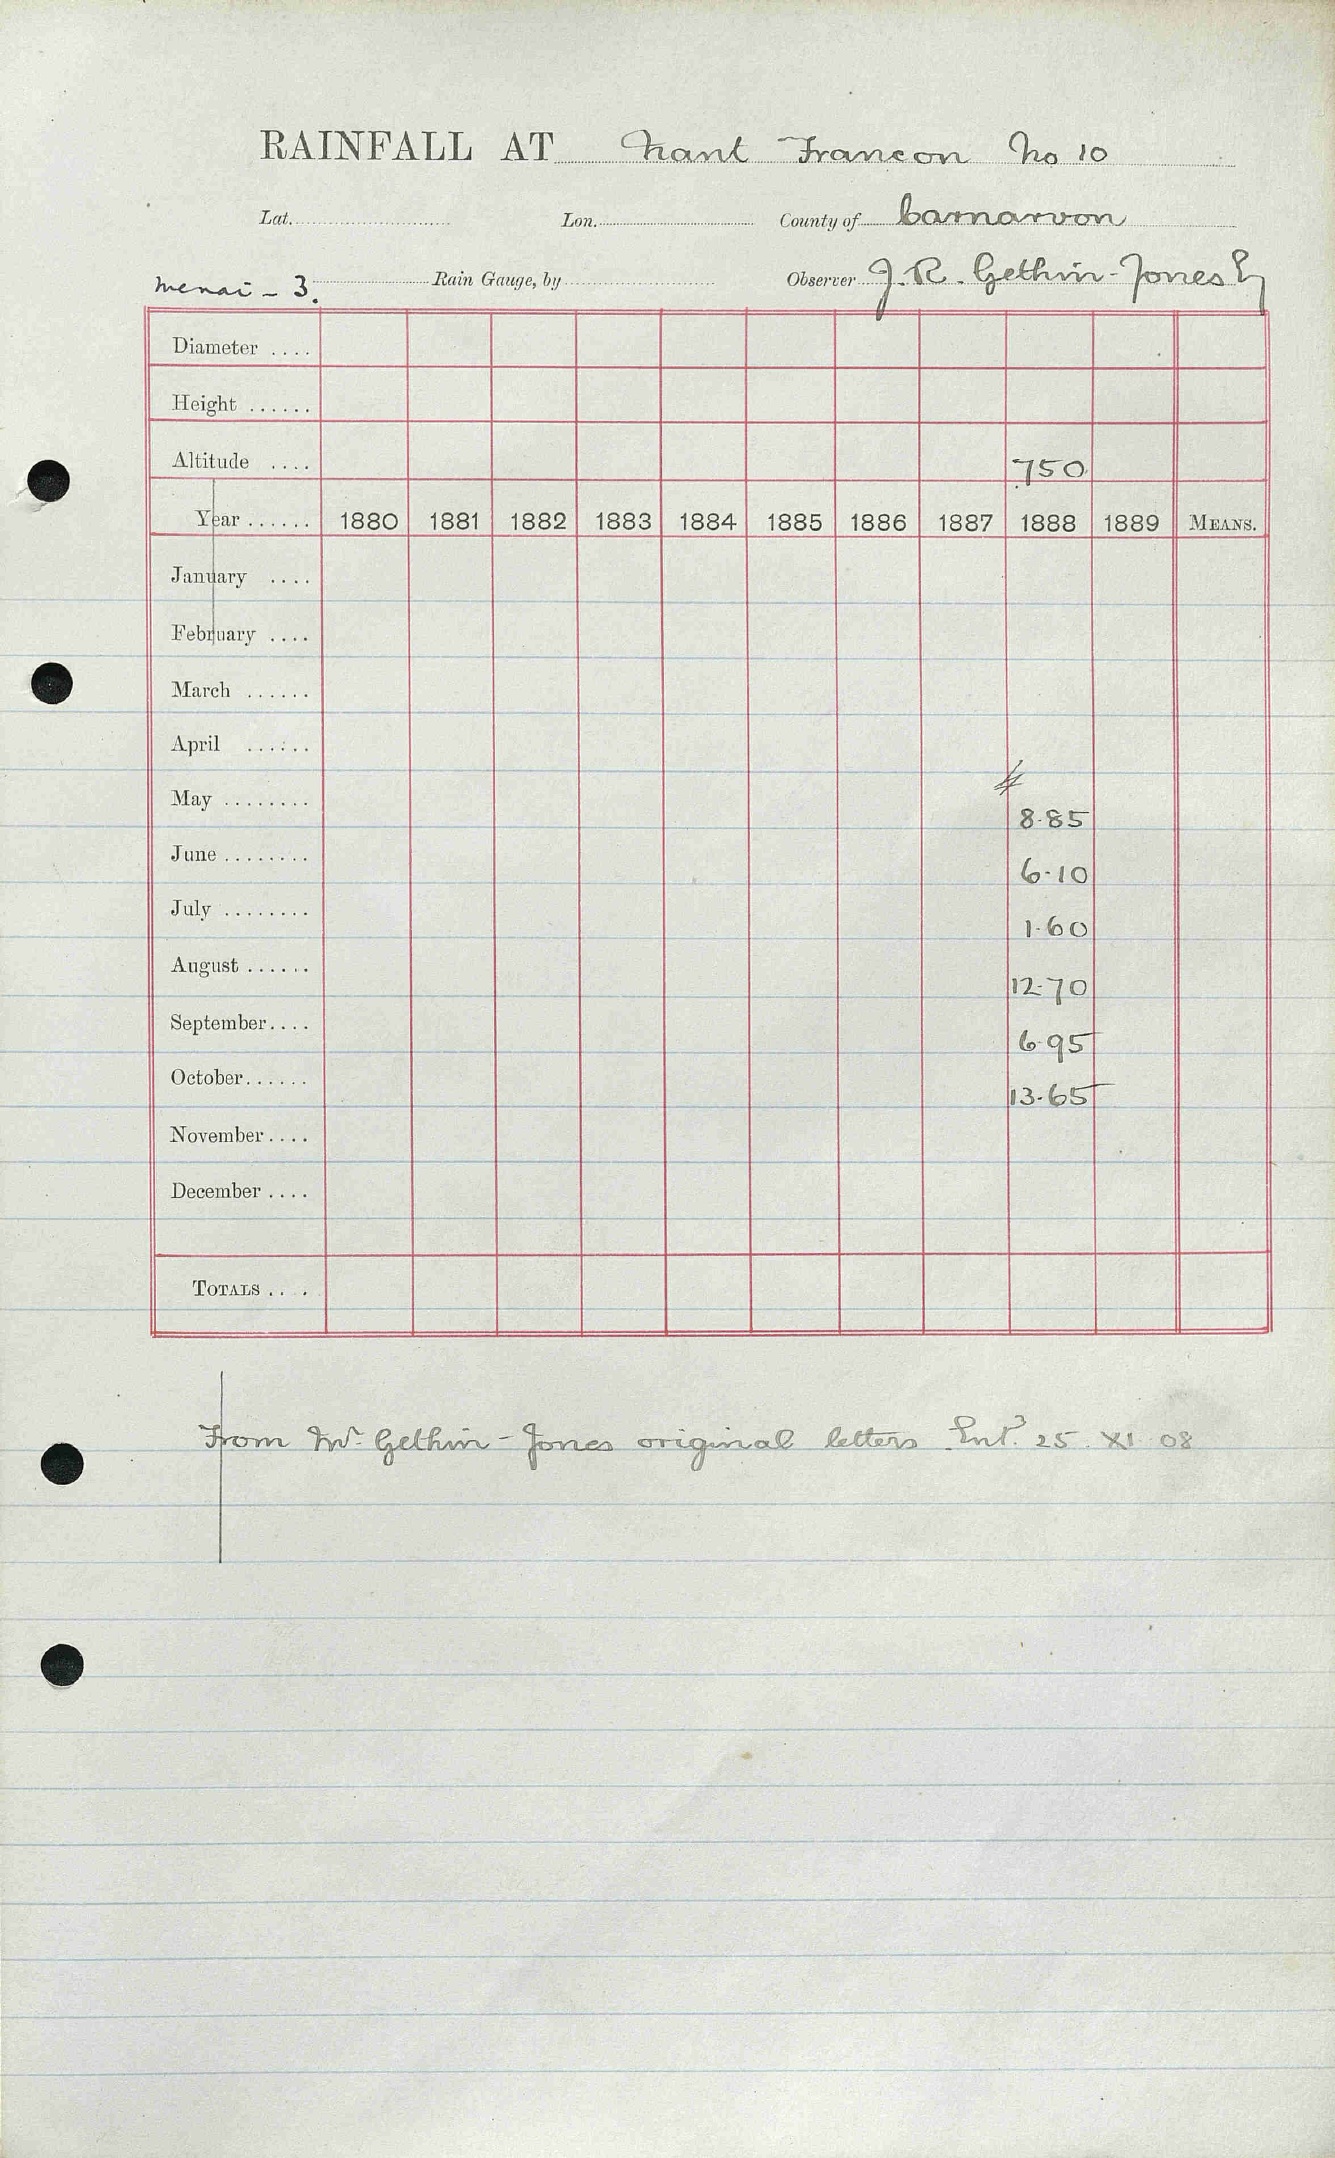 RAINFALL AT Nant Francon No 10
Lat. Lon. County of Carnarvon
Menai - 3. Rain Gauge, by Observer J. R. Gethin-Jones Eq
Diameter ....
Height ......
Altitude .... 750
Year ...... 1880 1881 1882 1883 1884 1885 1886 1887 1888 1889 MEANS.
January ....
February ....
March ......
April ......
May ........ 8.85
June ........ 6.10
July ........ 1.60
August ...... 12.70
September.... 6.95
October...... 13.65
November....
December ....
TOTALS ....
From Mr Gethin-Jones original letters Entd. 25 XI 08